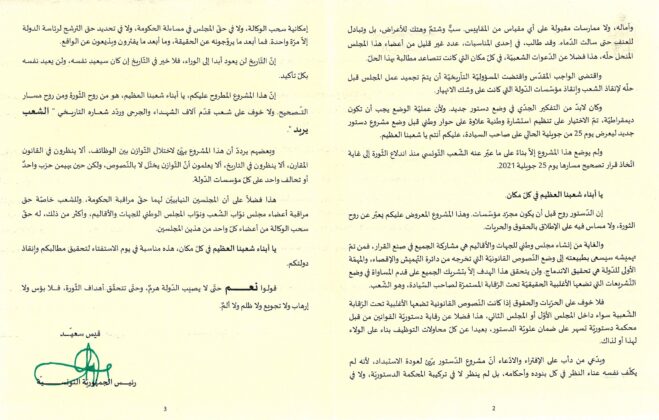 وآماله، ولا ممارسات مقبولة على أي مقياس من المقاييس. سبٌّ وشتمٌ وهتك للأعراض، بل وتبادل
للعنف حتى سالت الدّماء. وقد طالب، في إحدى المناسبات، عدد غير قليل من أعضاء هذا المجلس
المنحل حلّه، هذا فضلا عن الدعوات الشعبيّة، في كلّ مكان التي كانت تتصاعد مطالبة بهذا الحلّ.
واقتضى الواجب المقدّس واقتضت المسؤوليّة التاريخيّة أن يتمّ تجميد عمل المجلس قبل
حلّه لإنقاذ الشعب وإنقاذ مؤسّسات الدّولة التي كانت على وشك الانهيار.
وكان لابدّ من التفكير الجدّي في وضع دستور جديد. ولأن عمليّة الوضع يجب أن تكون
ديمقراطيّة، تمّ الاختيار على تنظيم استشارة وطنية علاوة على حوار وطني قبل وضع مشروع دستور
جديد ليعرض يوم 25 من جويلية الحالي على صاحب السيادة، عليكم أنتم يا شعبنا العظيم.
ولم يوضع هذا المشروع إلاّ بناءً على ما عبّر عنه الشّعب التّونسي منذ اندلاع الثّورة إلى غاية
اتّخاذ قرار تصحيح مسارها يوم 25 جويلية 2021.
يا أبناء شعبنا العظيم في كلّ مكان.
إن الدّستور روح قبل أن يكون مجرّد مؤسّسات. وهذا المشروع المعروض عليكم يعبّر عن روح
الثورة، ولا مساس فيه على الإطلاق بالحقوق والحريات.
والغاية من إنشاء مجلس وطني للجهات والأقاليم هي مشاركة الجميع في صنع القرار، فمن تمّ
تهميشه سيسعى بطبيعته إلى وضع النصوص القانونيّة التي تخرجه من دائرة التّهميش والإقصاء، والمهمّة
الأولى للدّولة هي تحقيق الاندماج. ولن يتحقق هذا الهدف إلاّ بتشريك الجميع على قدم المساواة في وضع
التّشريعات التي تضعها الأغلبية الحقيقيّة تحت الرّقابة المستمرّة لصاحب السّيادة، وهو الشّعب.
فلا خوف على الحرّيات والحقوق إذا كانت النّصوص القانونية تضعها الأغلبية تحت الرّقابة
الشّعبية سواء داخل المجلس الأوّل أو المجلس الثاني، هذا فضلا عن رقابة دستوريّة القوانين من قبل
محكمة دستوريّة تسهر على ضمان علويّة الدستور، بعيدا عن كلّ محاولات التوظيف بناء على الولاء
لهذا أو لذاك.
ويدّعي من دأب على الافتراء والادّعاء أنّ مشروع الدّستور يهيّئ لعودة الاستبداد، لأنه لم
يكلّف نفسه عناء النظر في كلّ بنوده وأحكامه، بل لم ينظر لا في تركيبة المحكمة الدستوريّة، ولا في
2
إمكانية سحب الوكالة، ولا في حقّ المجلس في مساءلة الحكومة، ولا في تحديد حق الترشح لرئاسة الدولة
إلاّ مرّة واحدة. فما أبعد ما يروّجونه عن الحقيقة، وما أبعد ما يفترون ويذيعون عن الواقع.
إنّ التّاريخ لن يعود أبدا إلى الوراء، فلا خير في التّاريخ إن كان سيعيد نفسه، ولن يعيد نفسه
بكلّ تأكيد.
إنّ هذا المشروع المطروح عليكم، يا أبناء شعبنا العظيم، هو من روح الثّورة ومن روح مسار
التّصحيح. ولا خوف على شعب قدّم آلاف الشّهداء والجرحى وردّد شعاره التاريخي " الشّعب
يريد ".
وبعضهم يردّدُ أن هذا المشروع يهيّئ لاختلال التّوازن بين الوظائف، ألا ينظرون في القانون
المقارن، ألا ينظرون في التاريخ، ألا يعلمون أنّ التّوازن يختلّ لا بالنّصوص، ولكن حين يهيمن حزب واحدٌ
أو تحالف واحد على كلّ مؤسسات الدّولة.
هذا فضلاً على أن المجلسين النيابيّين لهما حقّ مراقبة الحكومة، وللشّعب خاصّة حق
مراقبة أعضاء مجلس نوّاب الشّعب ونوّاب المجلس الوطني للجهات والأقاليم، وأكثر من ذلك، له حقّ
سحب الوكالة من أعضاء كلّ واحد من هذين المجلسين.
يا أبناء شعبنا العظيم في كلّ مكان، هذه مناسبة في يوم الاستفتاء لتحقيق مطالبكم وإنقاذ
دولتكم.
قولوا نعم حتى لا يصيب الدّولة هرمٌ، وحتى تتحقّق أهداف الثّورة، فلا بؤس ولا
إرهاب ولا تجويع ولا ظلم ولا ألمٌ.
قيس سعيّد
رئيس الجمهوريّة التونسيّة
3